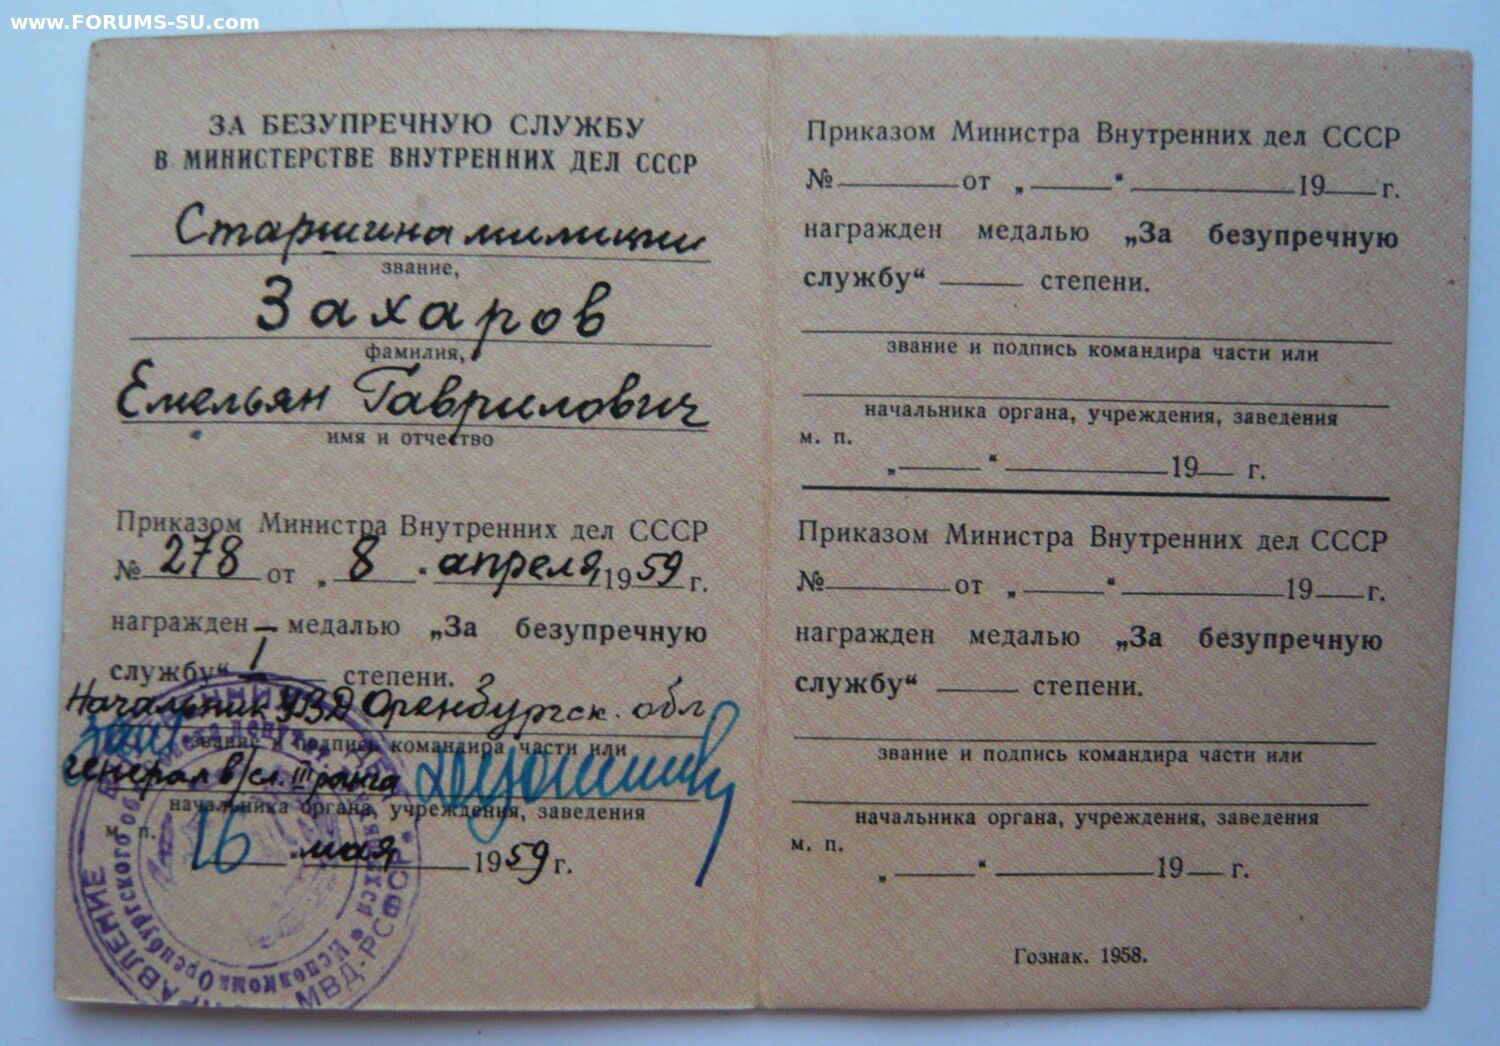 www.FORUMS-SU.com
ЗА БЕЗУПРЕЧНУЮ СЛУЖБУ
В МИНИСТЕРСТВЕ ВНУТРЕННИХ ДЕЛ СССР
Старшина милиции
звание,
Захаров
фамилия,
Емельян Гаврилович
имя и отчество
Приказом Министра Внутренних дел СССР
№ 278 от „ 8 “ апреля 1959 г.
награжден — медалью „За безупречную
службу“ I степени.
Начальник УВД Оренбургск. обл
Зам звание и подпись командира части или
генерал в/сл. III ранга
начальника органа, учреждения, заведения
м. п.
16 мая 1959 г.
УПРАВЛЕНИЕ
МВД-РСФСР
Исполкома Оренбургского
Приказом Министра Внутренних дел СССР
№ от „ “ 19 г.
награжден медалью „За безупречную
службу“ степени.
звание и подпись командира части или
начальника органа, учреждения, заведения
м. п.
„ “ 19 г.
Приказом Министра Внутренних дел СССР
№ от „ “ 19 г.
награжден медалью „За безупречную
службу“ степени.
звание и подпись командира части или
начальника органа, учреждения, заведения
м. п.
„ “ 19 г.
Гознак. 1958.